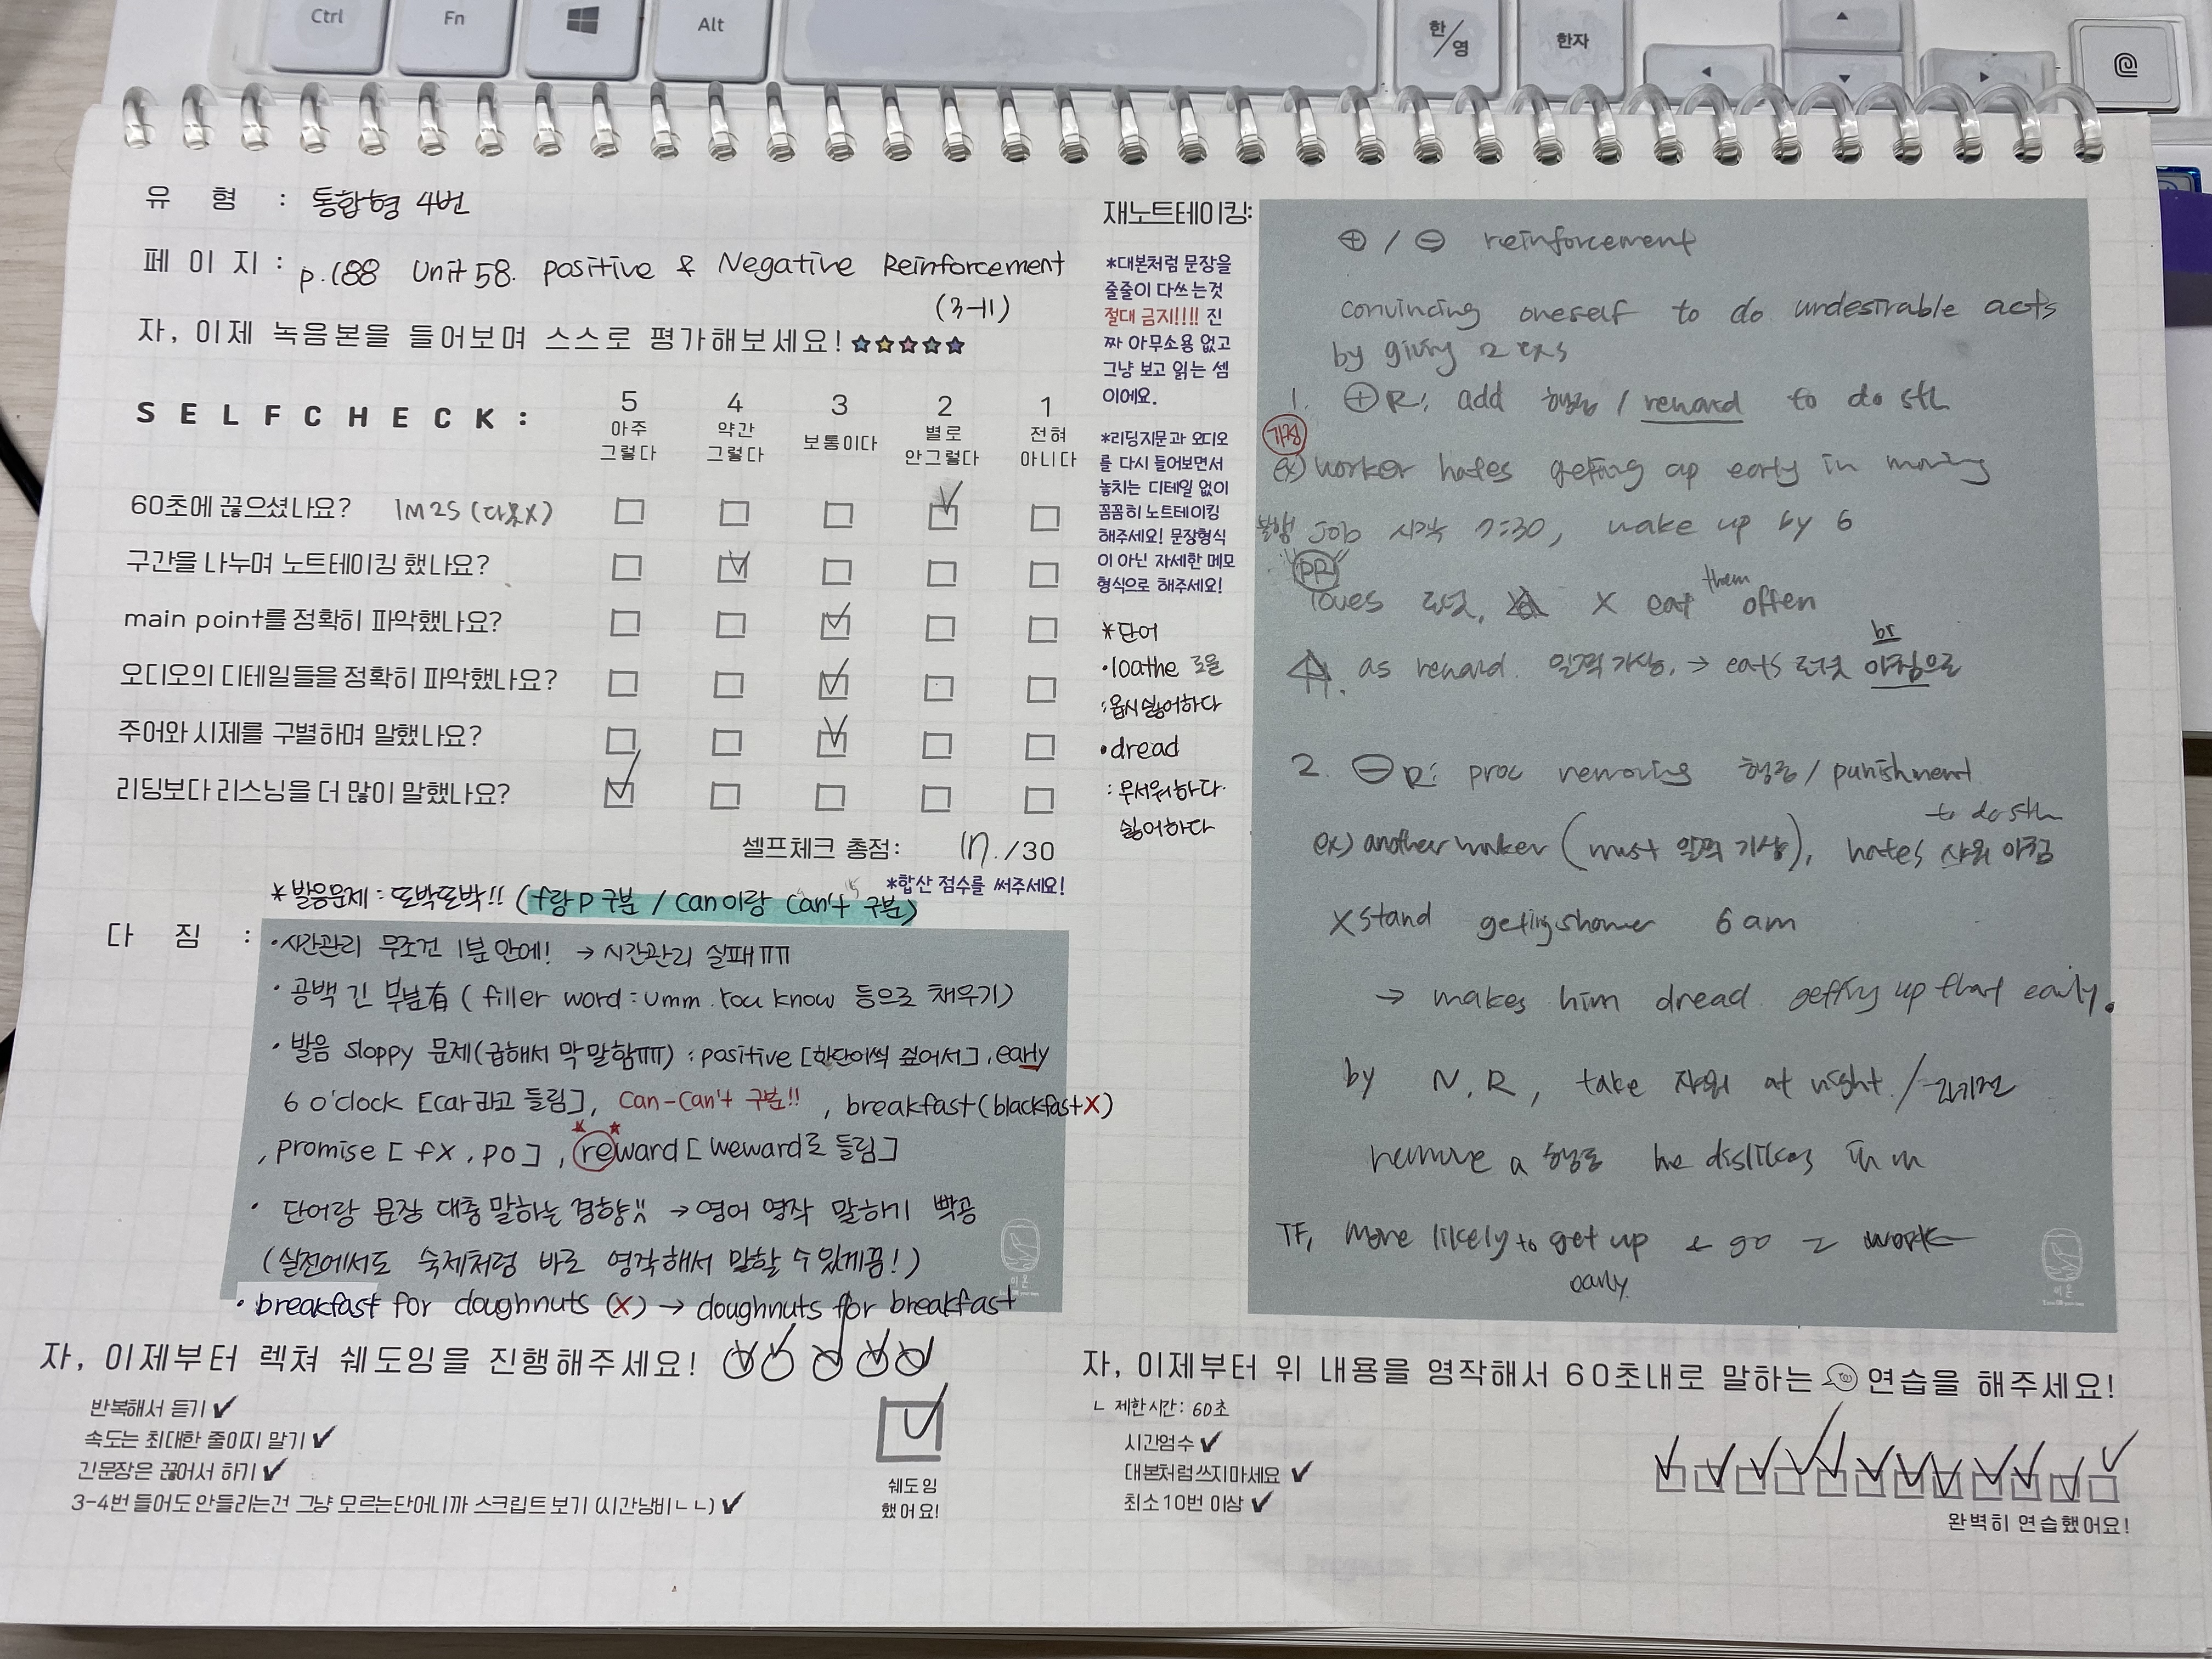 Ctrl
Fn
Alt
한/영
한자
유 형 : 통합형 4번
페 이 지 : p.188 Unit 58. positive & Negative Reinforcement
(3-11)
자, 이제 녹음본을 들어보며 스스로 평가해보세요!
SELFCHECK:
5 4 3 2 1
아주 그렇다
약간 그렇다
보통이다
별로 안그렇다
전혀 아니다
60초에 끊으셨나요? 1M2S (다못X)
구간을 나누며 노트테이킹 했나요?
main point를 정확히 파악했나요?
오디오의 디테일들을 정확히 파악했나요?
주어와 시제를 구별하며 말했나요?
리딩보다 리스닝을 더 많이 말했나요?
셀프체크 총점: 17./30
*합산 점수를 써주세요!
*발음문제 : 또박또박!! (f랑 p 구분 / can이랑 can't 구분)
다 짐 :
·시간관리 무조건 1분 안에! → 시간관리 실패ㅠㅠ
· 공백 긴 부분有 ( filler word : umm. You know 등으로 채우기)
· 발음 sloppy 문제(급해서 막 말함ㅠㅠ) : positive [한단어씩 짚어서] , early
6 o'clock [car라고 들림], can-can't 구분!! , breakfast (blackfast X)
, promise [ fX , po ] , reward [ weward로 들림]
· 단어랑 문장 대충 말하는 경향!! → 영어 영작 말하기 빡공
(실전에서도 숙제처럼 바로 영작해서 말할 수 있게끔!)
· breakfast for doughnuts (X) → doughnuts for breakfast
자, 이제부터 렉쳐 쉐도잉을 진행해주세요!
반복해서 듣기 ✔
속도는 최대한 줄이지 말기 ✔
긴문장은 끊어서 하기 ✔
3-4번 들어도 안들리는건 그냥 모르는단어니까 스크립트 보기 (시간낭비ㄴㄴ) ✔
쉐도잉
했어요!
재노트테이킹:
*대본처럼 문장을
줄줄이 다쓰는것
절대 금지!!!! 진
짜 아무소용 없고
그냥 보고 읽는 셈
이에요.
*리딩지문과 오디오
를 다시 들어보면서
놓치는 디테일 없이
꼼꼼히 노트테이킹
해주세요! 문장형식
이 아닌 자세한 메모
형식으로 해주세요!
*단어
·loathe 로욷
:몹시싫어하다
·dread
:무서워하다.
싫어하다
⊕ / ⊖ reinforcement
convincing oneself to do undesirable acts
by giving 2 exs
1. ⊕R: add 행동 / reward to do sth
가정
ex) worker hates getting up early in morning
job 시작 7:30, wake up by 6
PR
loves 도넛, X eat them often
as reward. 일찍 기상. → eats 도넛 아침으로
br
2. ⊖R: proc removing 행동 / punishment
to do sth
ex) another worker (must 일찍 기상), hates 샤워 아침
X stand getting shower 6 am
→ makes him dread getting up that early.
by N.R, take 샤워 at night /
remove a 행동 he dislikes in m
TF, more likely to get up & go 2 work
early.
자, 이제부터 위 내용을 영작해서 60초내로 말하는 연습을 해주세요!
ㄴ 제한시간: 60초
시간엄수 ✔
대본처럼쓰지마세요 ✔
최소10번 이상 ✔
완벽히 연습했어요!